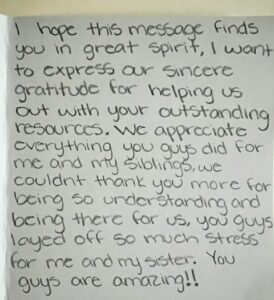 I hope this message finds
you in great spirit, I want
to express our sincere
gratitude for helping us
out with your outstanding
resources. We appreciate
everything you guys did for
me and my siblings, we
couldnt thank you more for
being so understanding and
being there for us, you guys
layed off so much stress
for me and my sister. You
guys are amazing!!